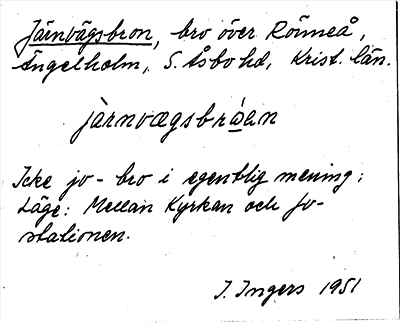 Järnvägsbron, bro över Rönneå,
Ängelholm, S. Åsbo hd, Krist. län.
jàrnvægsbrωan
Icke jv-bro i egentlig mening;
Läge: Mellan Kyrkan och Jv-
stationen.
I. Ingers 1951